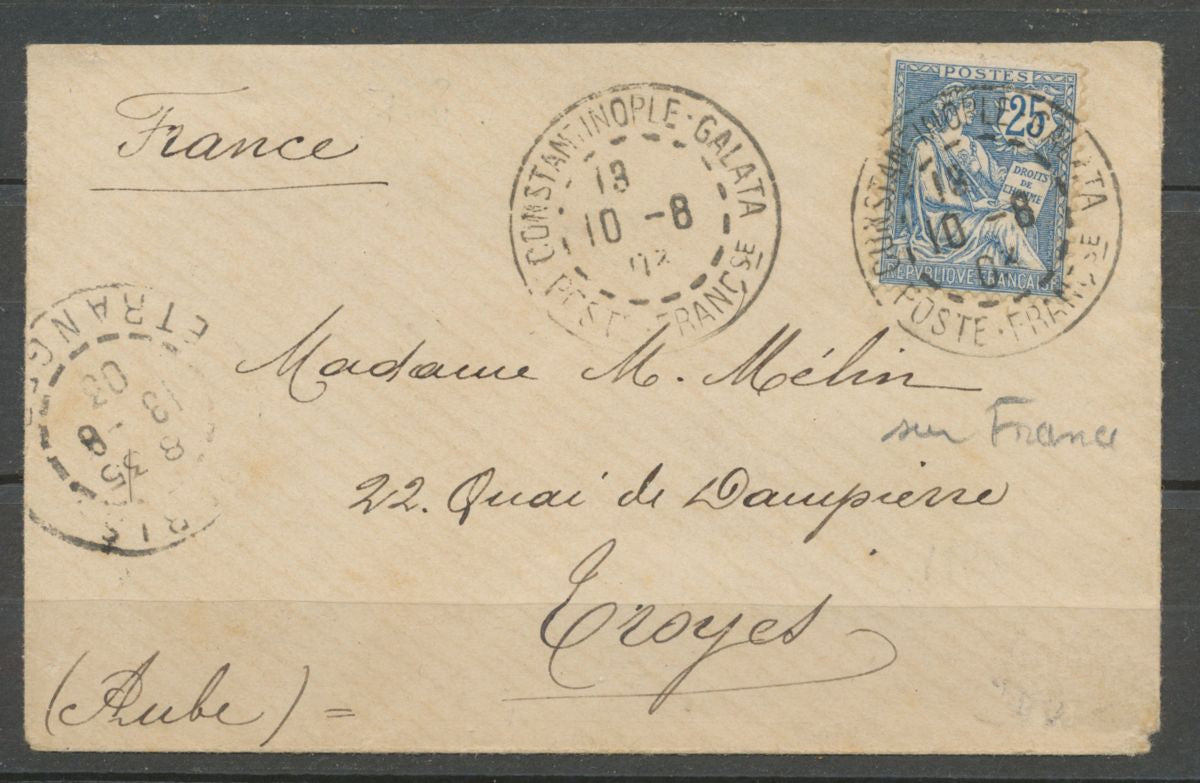 France
CONSTANTINOPLE-GALATA
13
10 -8
03
POSTE FRANÇSE
POSTES
25
DROITS
DE
L'HOMME
REPVBLIQVE FRANÇAISE
CONSTANTINOPLE-GALATA
13
10 -8
03
POSTE-FRANÇSE
Madame M. Mélin
sur France
22. Quai de Dampierre
Troyes
(Aube) =
ETRANG
03